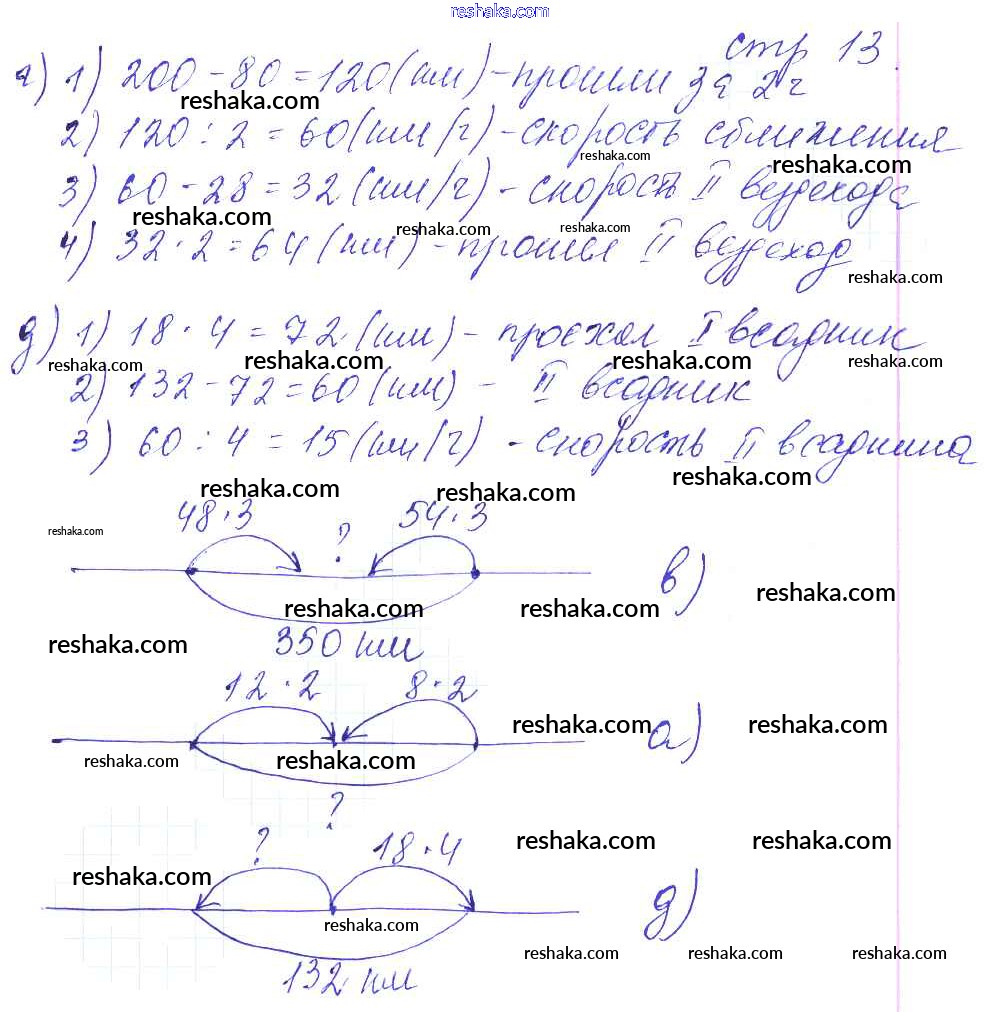 reshaka.com
стр 13.
г) 1) 200 - 80 = 120 (км) - прошли за 2 ч
reshaka.com
reshaka.com
2) 120 : 2 = 60 (км/ч) - скорость сближения
reshaka.com
reshaka.com
3) 60 - 28 = 32 (км/ч) - скорость II вездехода
reshaka.com
reshaka.com
reshaka.com
4) 32 · 2 = 64 (км) - прошел II вездеход
reshaka.com
д) 1) 18 · 4 = 72 (км) - проехал I всадник
reshaka.com
reshaka.com
reshaka.com
reshaka.com
2) 132 - 72 = 60 (км) - II всадник
3) 60 : 4 = 15 (км/ч) - скорость II всадника
reshaka.com
reshaka.com
reshaka.com
48·3 ? 54·3
reshaka.com
в)
reshaka.com
reshaka.com
reshaka.com
350 км
reshaka.com
12·2 8·2
а)
reshaka.com
reshaka.com
reshaka.com
reshaka.com
?
? 18·4
reshaka.com
reshaka.com
reshaka.com
д)
reshaka.com
132 км
reshaka.com
reshaka.com
reshaka.com